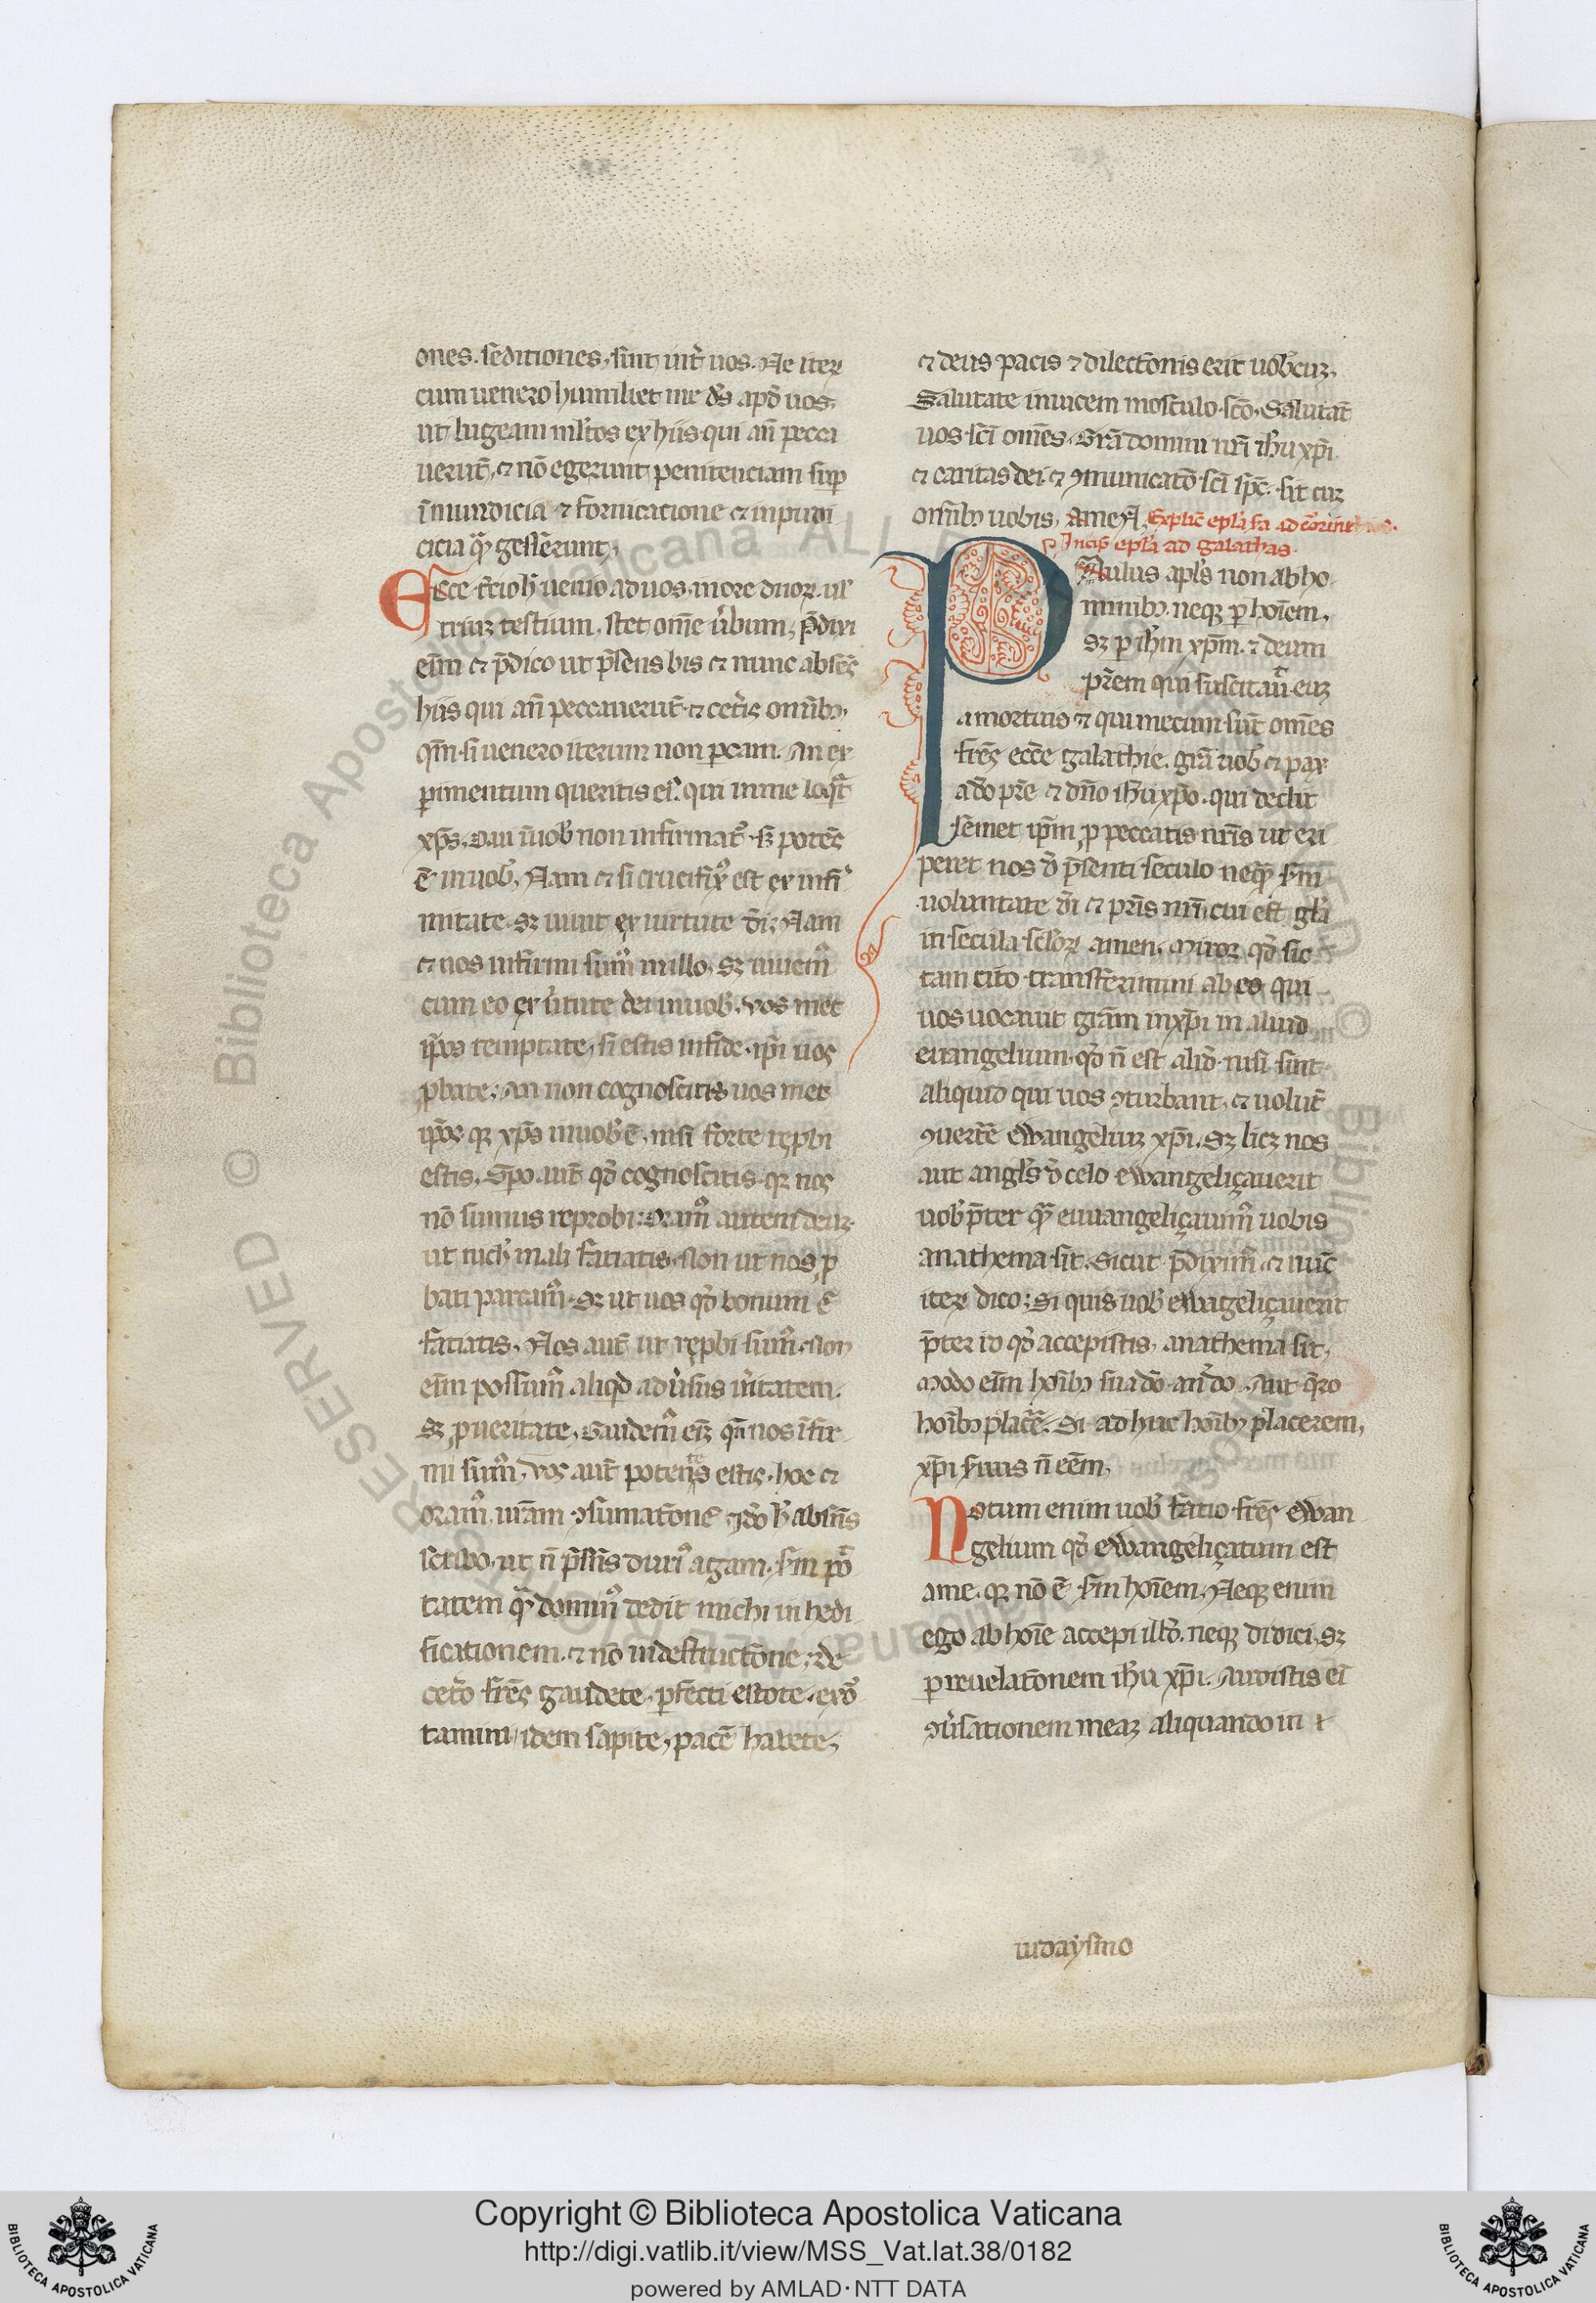 ones. seditiones, sint int̃ uos. Ne iteꝝ
cum uenero humiliet me ds̃ apđ uos,
ut lugeam mlt̃os ex hiis qui añ pecca
uerũt, ⁊ nõ egerunt penitenciam suꝑ
ĩmundicia ⁊ fornicatione ⁊ inpudi
cicia qꝫ gesserunt,
Ecce t̃cio h̃ uenio ad uos. in ore duoꝝ. ul̃
triuꝫ testium, stet om̃e ũbum, p̃dixi
eĩm ⁊ p̃dico ut p̃sens bis ⁊ nunc absẽs
hiis qui añ peccauerũt ⁊ cet̃is omĩbꝫ,
qm̃ si uenero iterum non ꝑcam. An ex
ꝑimentum queritis eiꝰ. qui in me loqt̃
xp̃s. Qui ĩ uob̃ non infirmat̃ sꝫ potẽs
ẽ in uob̃, Nam ⁊ si crucifixꝰ est ex infi
mitate. sꝫ uiuit ex uirtute dĩ, Nam
⁊ nos infirmi sumꝰ in illo, sꝫ uiuemꝰ
cum eo ex ũtute dei in uob̃. vos met
ip̃os temptate, si estis in fide. ip̃i uos
ꝓbate; An non cognoscitis uos met
ip̃os qꝫ xp̃s in uob̃ ẽ, nisi forte reꝓbi
estis, Spo. aut̃ qđ cognoscitis. qꝫ nos
nõ sumus reprobi; Oramꝰ autem deuꝫ.
ut nich̃ mali fatiatis, Non ut nos ꝓ
bati pareamꝰ. sꝫ ut uos qđ bonum ẽ
fatiatis, Nos aut̃ ut reꝓbi simꝰ. Non
eĩm possumꝰ aliqđ adũsus ũitatem.
sꝫ ꝓ ueritate, Gaudemꝰ eĩ qñ nos ĩfir
mi sumꝰ, vos aut̃ potent̃es estis. hoc ⁊
oramꝰ, ur̃am ꝯsumatõne Iđo h̃ absñs
scribo, ut ñ p̃sñs duriꝰ agam. sm̃ põ
tatem qꝫ dominꝰ dedit michi in hedi
ficationem. ⁊ nõ in destructõne; de
cet̃o frẽs gaudete. ꝑfecti estote. exõ
tamini, idem sapite, pacẽ habete,
⁊ deus pacis ⁊ dilectõnis erit uob̃cuꝫ,
Salutate inuicem in osculo sc̃o, Salutãt
uos sc̃i om̃es. Gr̃a domini nr̃i ih̃u xp̃i
⁊ caritas dei. ⁊ ꝯmunicatõ sc̃i sp̃c. sit cuꝫ
omĩbꝫ uobis, Amen, Explic̃ epl̃a s̃a ad corint
Incip̃ epl̃a ad galathas.
Paulus apl̃s non ab ho
minibꝫ. neqꝫ ꝑ hoĩem,
sꝫ ꝑ ih̃m xp̃m. ⁊ deum
pr̃em qui suscitauit̃ euꝫ
a mortuis ⁊ qui mecum sũt om̃es
frẽs eccẽ galathie. gr̃a uob̃ ⁊ pax
a đo pr̃e ⁊ dño ih̃u xp̃o. qui dedit
semet ip̃m, ꝓ peccatis nr̃is ut eri
peret nos đ p̃senti seculo neqꝫ sm̃
uoluntate dĩ ⁊ pr̃is nr̃i, cui est gl̃a
in secula scl̃oꝝ amen. Miror qđ sic
tam cito transferimini ab eo qui
uos uocauit gr̃am in xp̃i in aliud
euangelium. qđ ñ est aliđ. nisi sint
aliquid qui uos ꝯturbant, ⁊ uolũt
ꝯuertẽ ewangeliuꝫ xp̃i. sꝫ licꝫ nos
aut angl̃s đ celo ewangeliçauerit
uob̃ p̃ter qꝫ euuangeliçauimꝰ uobis
anathema sit. sicut p̃diximꝰ. ⁊ nũc
iteꝝ dico; Si quis uob̃ ewãgeliçauerit
p̃ter id qđ accepistis, anathema sit,
Modo eĩm hoĩbꝫ suadõ. an đo. Aut q̃ro
hoĩbꝫ placẽ. Si ad huc hoĩbꝫ placerem,
xp̃i suus ñ eẽm,
Notum enim uob̃ fatio frẽs ewan
gelium qđ ewangeliçatum est
a me. qꝫ nõ ẽ sm̃ hoĩem, Neqꝫ enim
ego ab hoĩe accepi ill̃đ. neqꝫ didici, sꝫ
ꝑ reuelatõnem ih̃u xp̃i. Audistis eĩ
ꝯũsationem meaꝫ aliquando in
iudaysmo
Copyright © Biblioteca Apostolica Vaticana
http://digi.vatlib.it/view/MSS_Vat.lat.38/0182
powered by AMLAD·NTT DATA
BIBLIOTECA APOSTOLICA VATICANA
BIBLIOTECA APOSTOLICA VATICANA